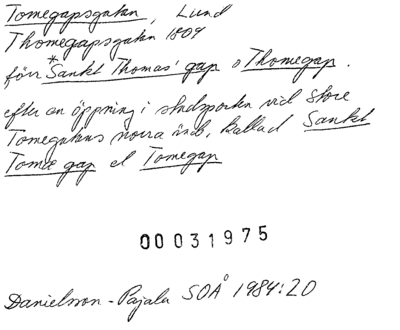 Tomegapsgatan, Lund
Thomegapsgatan 1809
förr *Sankt Thomas' gap o Thomegap.
efter en öppning i stadsporten vid Stora
Tomegatans norra ände, kallad Sankt
Tomæ gap el Tomegap
00031975
Danielsson-Pajala SOÅ 1984:20